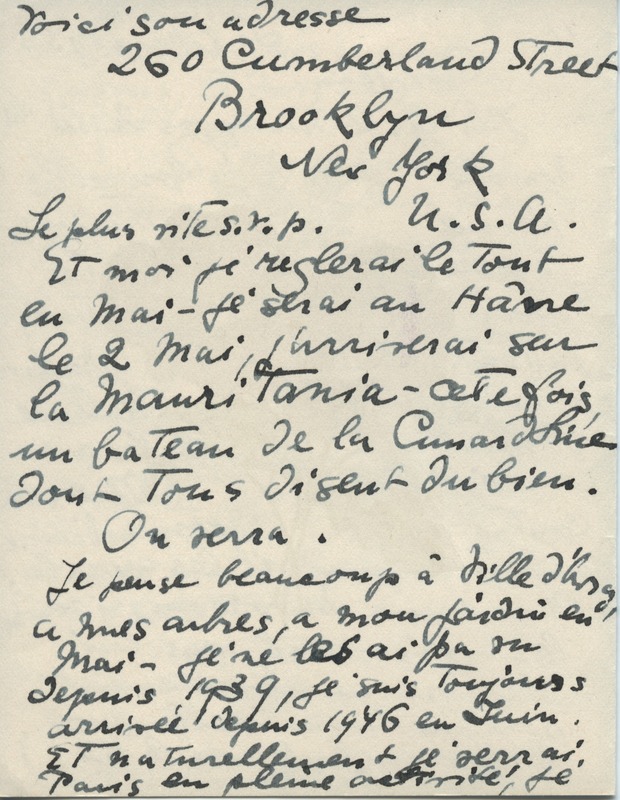 Voici son adresse
260 Cumberland Street
Brooklyn
New York
U.S.A.
Le plus vite s.v.p.
Et moi je reglerai le Tout
en Mai - je serai au Hâvre
le 2 Mai, j'arriverai sur
la MauriTania - cette fois
un bateau de la Cunard Line
dont Tous disent du bien.
On verra.
Je pense beaucoup à Ville d'Avray,
a mes arbres, a mon jardin en
Mai - je ne les ai pa vu
depuis 1939, je suis Toujours
arrivée depuis 1946 en Juin.
ET naturellement je verrai
Paris en pleine activité, je